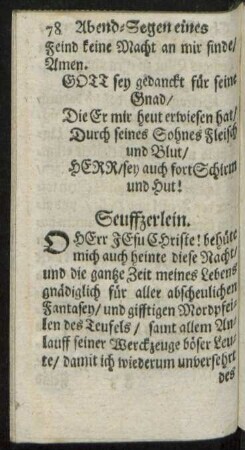 78 Abend-Segen eines
Feind keine Macht an mir finde/
Amen.
GOTT sey gedanckt für seine
Gnad/
Die Er mir heut erwiesen hat/
Durch seines Sohnes Fleisch
und Blut/
HERR/sey auch fort Schirm
und Hut!
Seuffzerlein.
O HErr JEsu CHriste! behüte
mich auch heinte diese Nacht/
und die gantze Zeit meines Lebens
gnädiglich für aller abscheulichen
Fantasey/ und gifftigen Mordpfei-
len des Teufels/ samt allem An-
lauff seiner Werckzeuge böser Leu-
te/ damit ich wiederum unversehrt
des